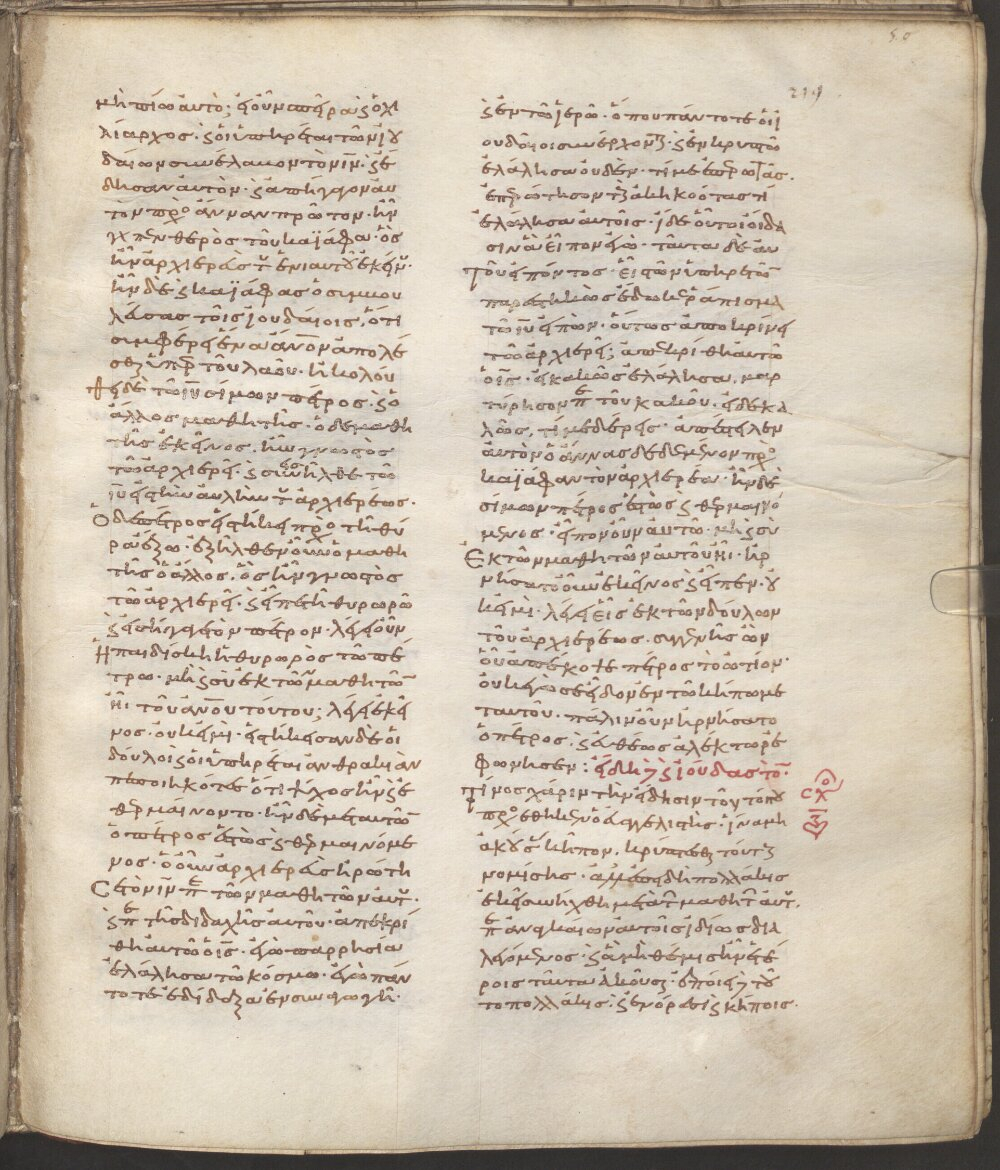 μὴ πίω αὐτό; ἡ οὖν σπεῖρα καὶ ὁ χι
λίαρχος· καὶ οἱ ὑπηρέται τῶν ἰου
δαίων συνέλαβον τὸν ἰν· καὶ ἔ
δησαν αὐτὸν· καὶ ἀπήγαγον αὐ
τὸν πρὸ ἄνναν πρῶτον· ἦν
γὰρ πενθερὸς τοῦ καϊάφα· ὃς
ἦν ἀρχιερεὺς τοῦ ἐνιαυτοῦ ἐκείνου·
ἦν δὲ καϊάφας ὁ συμβου
λεύσας τοῖς ἰουδαίοις, ὅτι
συμφέρει ἕνα ἀνον ἀπολέ
σθαι ὑπὲρ τοῦ λαοῦ· ἠκολού
θει δὲ τῶ ιυ σίμων πέτρος· καὶ ὁ
ἄλλος μαθητὴς· ὁ δὲ μαθη
τὴς ἐκεῖνος· ἦν γνωστὸς
τῶ ἀρχιερεῖ· καὶ συνεισῆλθε τῶ
ιυ εἰς τὴν αὐλὴν τοῦ ἀρχιερέως·
Ὁ δὲ πέτρος εἱστήκει πρὸ τῆ θύ
ρα ἔξω· ἐξῆλθεν οὖν ὁ μαθη
τὴς ὁ ἄλλος· ὃς ἦν γνωστὸς
τῶ ἀρχιερεῖ· καὶ εἶπε τῆ θυρωρῶ
καὶ εἰσήγαγε τὸν πέτρον· λέγει οὖν
Ἡ παιδίσκη ἡ θυρωρὸς τῶ πέ
τρω· μὴ καὶ σὺ ἐκ τῶν μαθητῶν
εἶ τοῦ ἀνου τούτου; λέγει ἐκεῖ
νος· οὐκ εἰμὶ· εἱστήκεσαν δὲ οἱ
δοῦλοι καὶ οἱ ὑπηρέται ἀνθρακιὰν
πεποιηκότες ὅτι ψύχος ἦν καὶ ἐ
θερμαίνοντο· ἦν δὲ μετ αὐτῶν
ὁ πέτρος ἑστὼς καὶ θερμαινόμε
νος· ὁ οὖν ἀρχιερεὺς ἠρώτη
Σε τὸν ἰν π τῶν μαθητῶν αὐτοῦ·
καὶ π τῆς διδαχῆς αὐτοῦ· ἀπεκρί
θη αὐτῶ ὁ ις· ἐγὼ παρρησία
ἐλάλησα τῶ κόσμω· ἐγὼ πάν
τοτε ἐδίδαξα ἐν συναγωγῆ·
καὶ ἐν τῶ ἱερῶ· ὅπου πάντοτε οἱ ἰ
ουδαῖοι συνέρχονται· καὶ ἐν κρυπτῶ
ἐλάλησα οὐδέν· τί με ἐπερωτᾶς·
ἐπερώτησον τοὺς ἀκηκοότας τί
ἐλάλησα αὐτοῖς· ἴδε οὗτοι οἴδα
σιν ἃ εἶπον ἐγώ· ταῦτα δὲ αὐ
Τοῦ εἰπόντος· εἷς τῶν ὑπηρετῶν
παρεστηκὼς ἔδωκε ῥάπισμα
τῶ ιυ εἰπών· οὕτως ἀποκρίνη
τῶ ἀρχιερεῖ; ἀπεκρίθη αὐτῶ
ὁ ις· εἰ κακῶς ἐλάλησα, μαρ
τύρησον π τοῦ κακοῦ· εἰ δὲ κα
λῶς, τί με δέρεις· ἀπέστειλεν
αὐτὸν ὁ ἄννας δεδεμένον πρὸ
καϊάφαν τὸν ἀρχιερέα· ἦν δὲ
σίμων πέτρος ἑστὼς καὶ θερμαινό
μενος· εἶπον οὖν αὐτῶ· μὴ καὶ σὺ
Ἐκ τῶν μαθητῶν αὐτοῦ εἶ· ἠρ
νήσατο οὖν ἐκεῖνος καὶ εἶπεν· οὐ
κ εἰμὶ· λέγει εἷς ἐκ τῶν δούλων
τοῦ ἀρχιερέως· συγγενὴς ὢν
οὗ ἀπέκοψε πέτρος τὸ ὠτίον·
οὐκ ἐγώ σε εἶδον ἐν τῶ κήπω με
τ αὐτοῦ· πάλιν οὖν ἠρνήσατο
ὁ πέτρος· καὶ εὐθέως ἀλέκτωρ ἐ
φώνησεν: ἤδει καὶ ἰούδας τὸ·
Τίνος χάριν τὴν εἴδησιν τοῦ τόπου
προσέθηκεν ὁ εὐαγγελιστὴς· ἵνα μὴ
νομίσης· ἀλλ πολλάκις
ἐκεῖ συνήχθη μετὰ τῶν μαθητῶν αὐτοῦ,
π ἀναγκαίων αὐτοῖς ἰδίως δια
λεγόμενος· καὶ ἃ μὴ θέμις ἦν ἑτέ
ροις ταῦτα ἀκούειν· ἐποίει τοῦ
το πολλάκις· καὶ ἐν ὄρεσι καὶ κήποις·